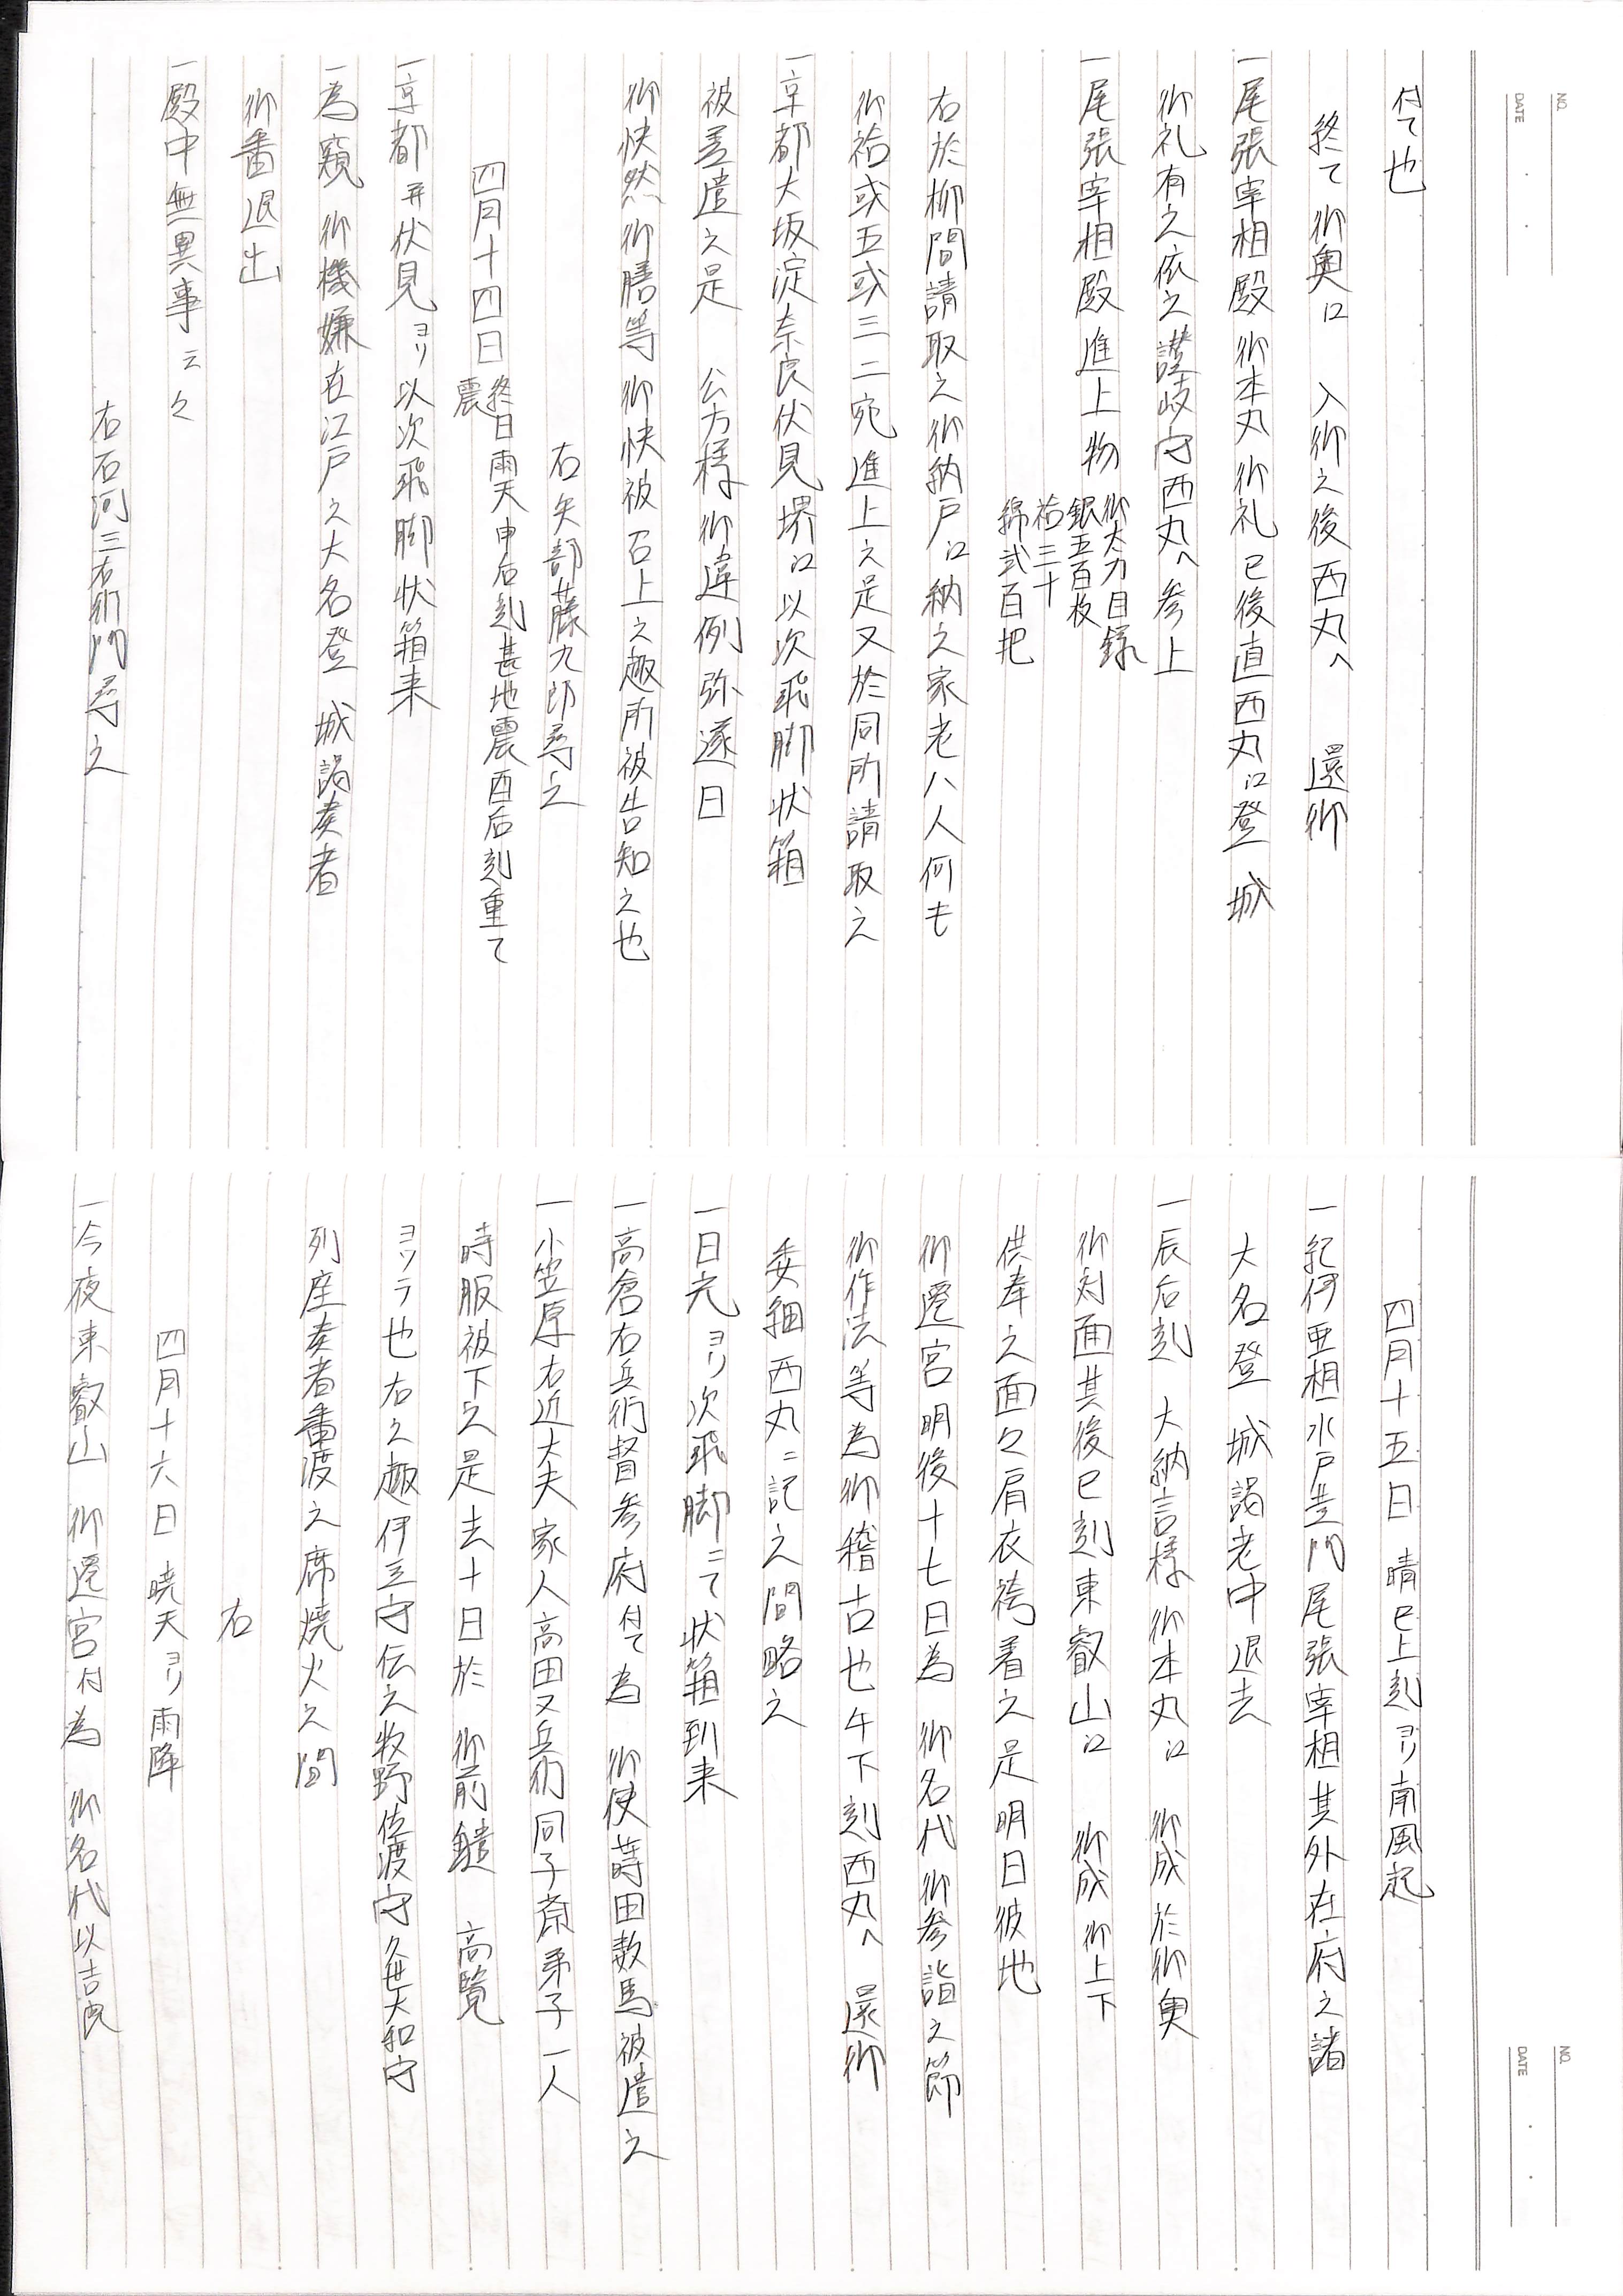 NO.
DATE
付て也
終て御奥江　入御之後西丸へ　還御
一尾張宰相殿御本丸御礼已後直西丸江登　城
御礼有之依之讃岐守西丸へ参上
一尾張宰相殿進上物
御太刀目録
銀五百枚
袷三十
綿弐百把
右於柳間請取之御納戸江納之家老八人何も
御袷或五或三二宛進上之是又於同所請取之
一京都大坂淀奈良伏見堺江以次飛脚状箱
被差遣之是　公方様御違例弥逐日
御快然御膳等御快被召上之趣所被告知之也
右矢部藤九郎尋之
四月十四日
終日雨天申后刻甚地震酉后刻重て
震
一京都并伏見ヨリ以次飛脚状箱来
一為窺御機嫌在江戸之大名登　城謁奏者
御番退出
一殿中無異事云々
右石河三右衛門尋之
NO.
DATE
四月十五日　晴巳上刻ヨリ南風起
一紀伊亜相水戸黄門尾張宰相其外在府之諸
大名登　城謁老中退去
一辰后刻　大納言様御本丸江　御成於御奥
御対面其後巳刻東叡山江　御成御上下
供奉之面々肩衣袴着之是明日彼地
御遷宮明後十七日為　御名代御参詣之節
御作法等為御稽古也午下刻西丸へ　還御
委細西丸ニ記之間略之
一日光ヨリ次飛脚ニて状箱到来
一高倉右兵衛督参府付て為　御使蒔田数馬被遣之
一小笠原右近大夫家人高田又兵衛同子斎弟子一人
時服被下之是去十日於　御前鑓　高覧
ヨツテ也右之趣伊豆守伝之牧野佐渡守久世大和守
列座奏者番渡之席焼火之間
右
四月十六日　暁天ヨリ雨降
一今夜東叡山　御遷宮付為　御名代以吉良